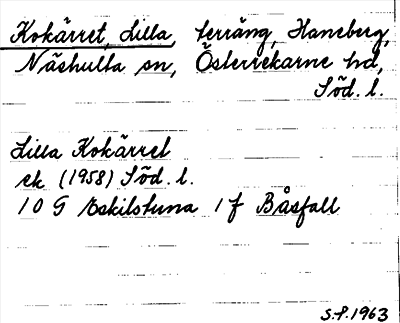 Kokärret, Lilla, terräng, Haneberg,
Näshulta sn, Österrekarne hd,
Söd. l.
Lilla Kokärret
ek (1958) Söd. l.
10 G Eskilstuna 1 f Båsfall
S.P. 1963